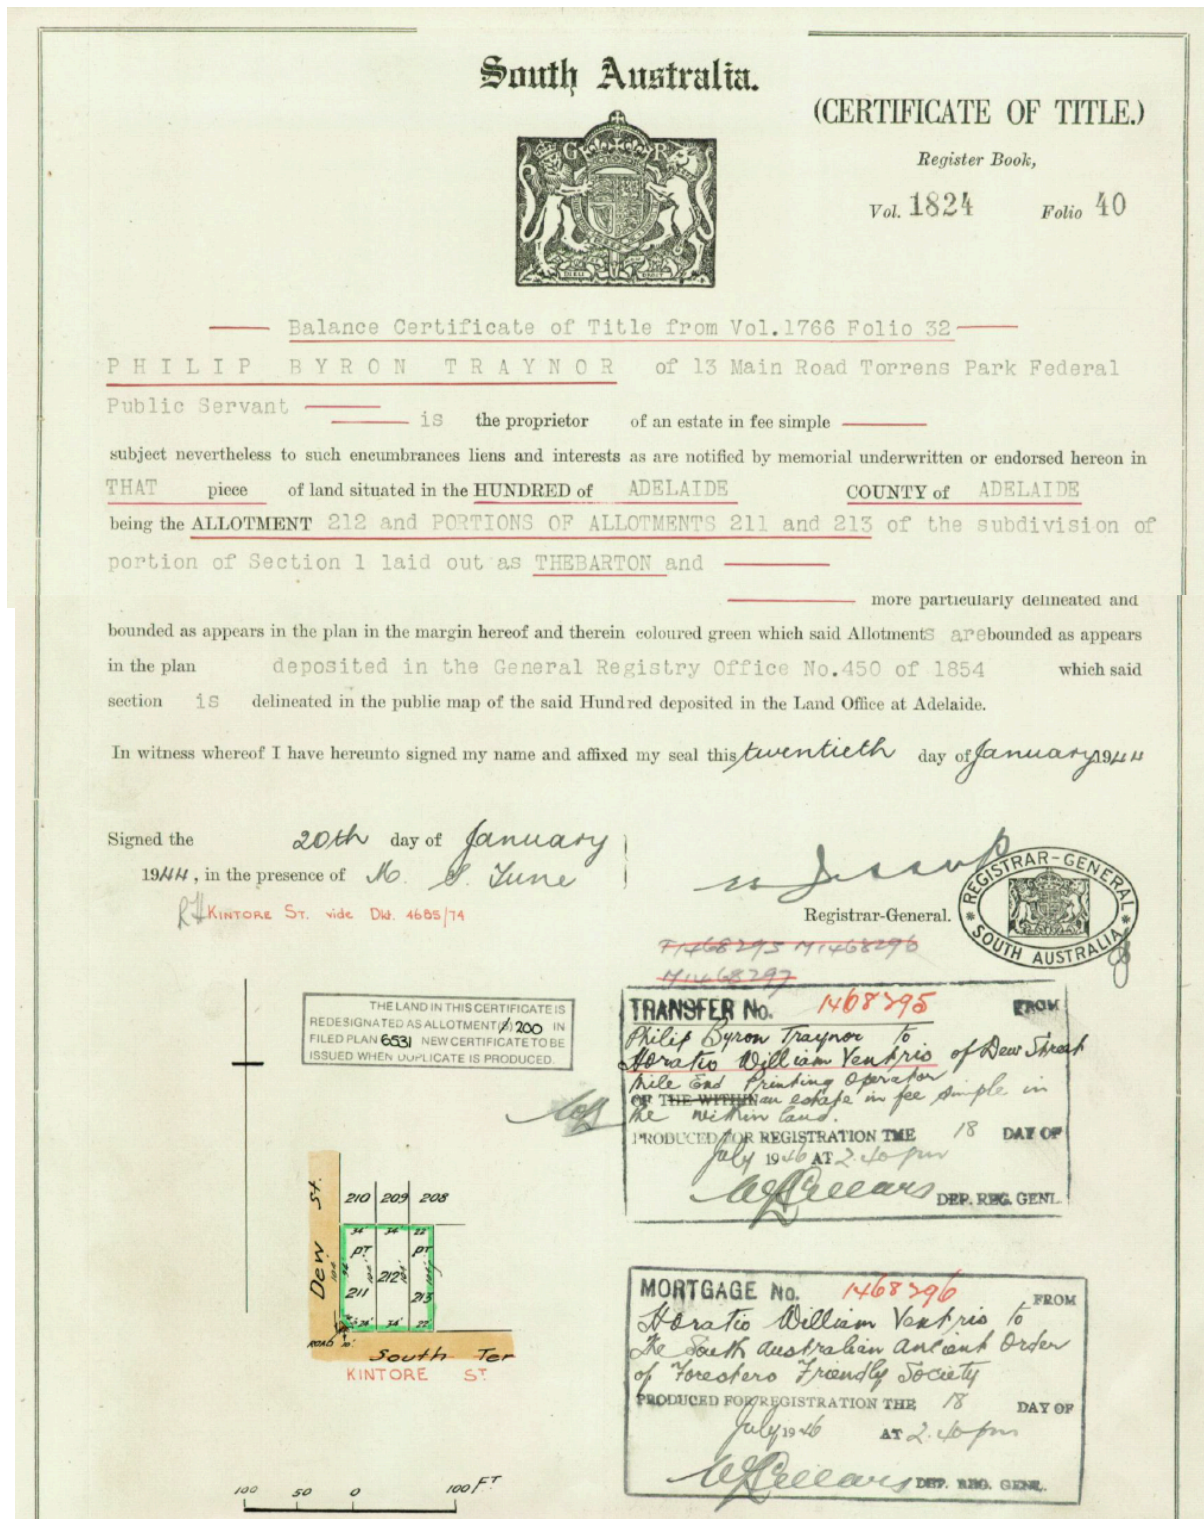 South Australia.
(CERTIFICATE OF TITLE.)
Register Book,
Vol. 1824 Folio 40
G R
Balance Certificate of Title from Vol.1766 Folio 32
PHILIP BYRON TRAYNOR of 13 Main Road Torrens Park Federal
Public Servant
is the proprietor of an estate in fee simple
subject nevertheless to such encumbrances liens and interests as are notified by memorial underwritten or endorsed hereon in
THAT piece of land situated in the HUNDRED of ADELAIDE COUNTY of ADELAIDE
being the ALLOTMENT 212 and PORTIONS OF ALLOTMENTS 211 and 213 of the subdivision of
portion of Section 1 laid out as THEBARTON and
more particularly delineated and
bounded as appears in the plan in the margin hereof and therein coloured green which said Allotments are bounded as appears
in the plan deposited in the General Registry Office No.450 of 1854 which said
section is delineated in the public map of the said Hundred deposited in the Land Office at Adelaide.
In witness whereof I have hereunto signed my name and affixed my seal this twentieth day of January 1944
Signed the 20th day of January
1944, in the presence of
Registrar-General.
REGISTRAR-GENERAL
SOUTH AUSTRALIA
KINTORE ST. vide Dkt. 4685/74
T1468295 M1468296
M1468297
THE LAND IN THIS CERTIFICATE IS
REDESIGNATED AS ALLOTMENT(S) 200 IN
FILED PLAN 6531 NEW CERTIFICATE TO BE
ISSUED WHEN DUPLICATE IS PRODUCED.
TRANSFER No. 1468295 FROM
Philip Byron Traynor to
Horatio William Ventris of Dew Street
Mile End Printing Operator
OF THE WITHIN an estate in fee simple in
the within land.
PRODUCED FOR REGISTRATION THE 18 DAY OF
July 1946 AT 2.40 pm
DEP. REG. GENL.
Dew St.
210 209 208
34' 34' 22'
PT PT
212
211 213
34' 22'
ROAD
South Ter
KINTORE ST
MORTGAGE No. 1468296 FROM
Horatio William Ventris to
The South Australian Ancient Order
of Foresters Friendly Society
PRODUCED FOR REGISTRATION THE 18 DAY OF
July 1946 AT 2.40 pm
DEP. REG. GENL.
100 50 0 100 FT